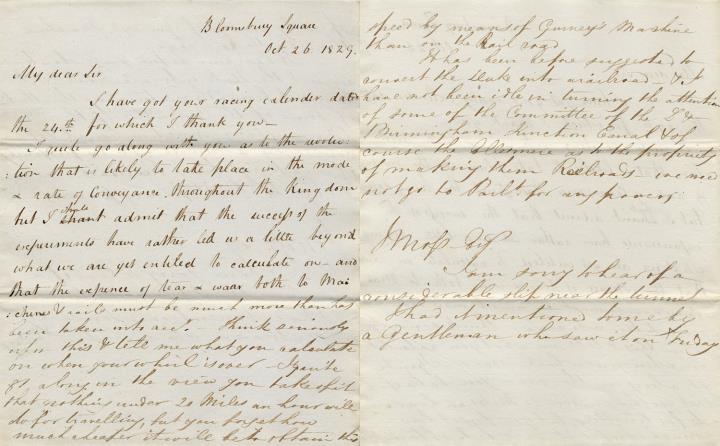 Bloomsbury Square
Oct. 26. 1829.
My dear Sir
I have got your racing calender date
the 24.th for which I thank you—
I quite go along with you as to the revolu:
:tion that is likely to take place in the mode
& rate of Conveyance throughout the Kingdom
but I must admit that the success of the
experiments have rather led us a little beyond
what we are yet entitled to calculate on—and
that the expence of tear & waar both to Ma:
:chines & rails must be much more than has
been taken into acct— Think seriously
upon this & tell me what you calculate
on when your whirl is over— I quite
go, along in the view you take of it
that nothing under 20 Miles an hour will
do for travelling, but you forget how
much cheaper it will be to obtain this
speed by means of Gurney's Machine
than on the Rail road
It has been before suggested to
convert the Duke into a railroad & I
have not been idle in turning the attention
of some of the Committee of the L &
Birmingham Junction Canal & of
course the Ellesmere as to the propriety
of making them Railroads— we need
not go to Parlt for any powers
J Moss Esq
I am sorry to hear of a
considerable slip near the tunnel
I had it mentioned to me by
a Gentleman who saw it on Friday